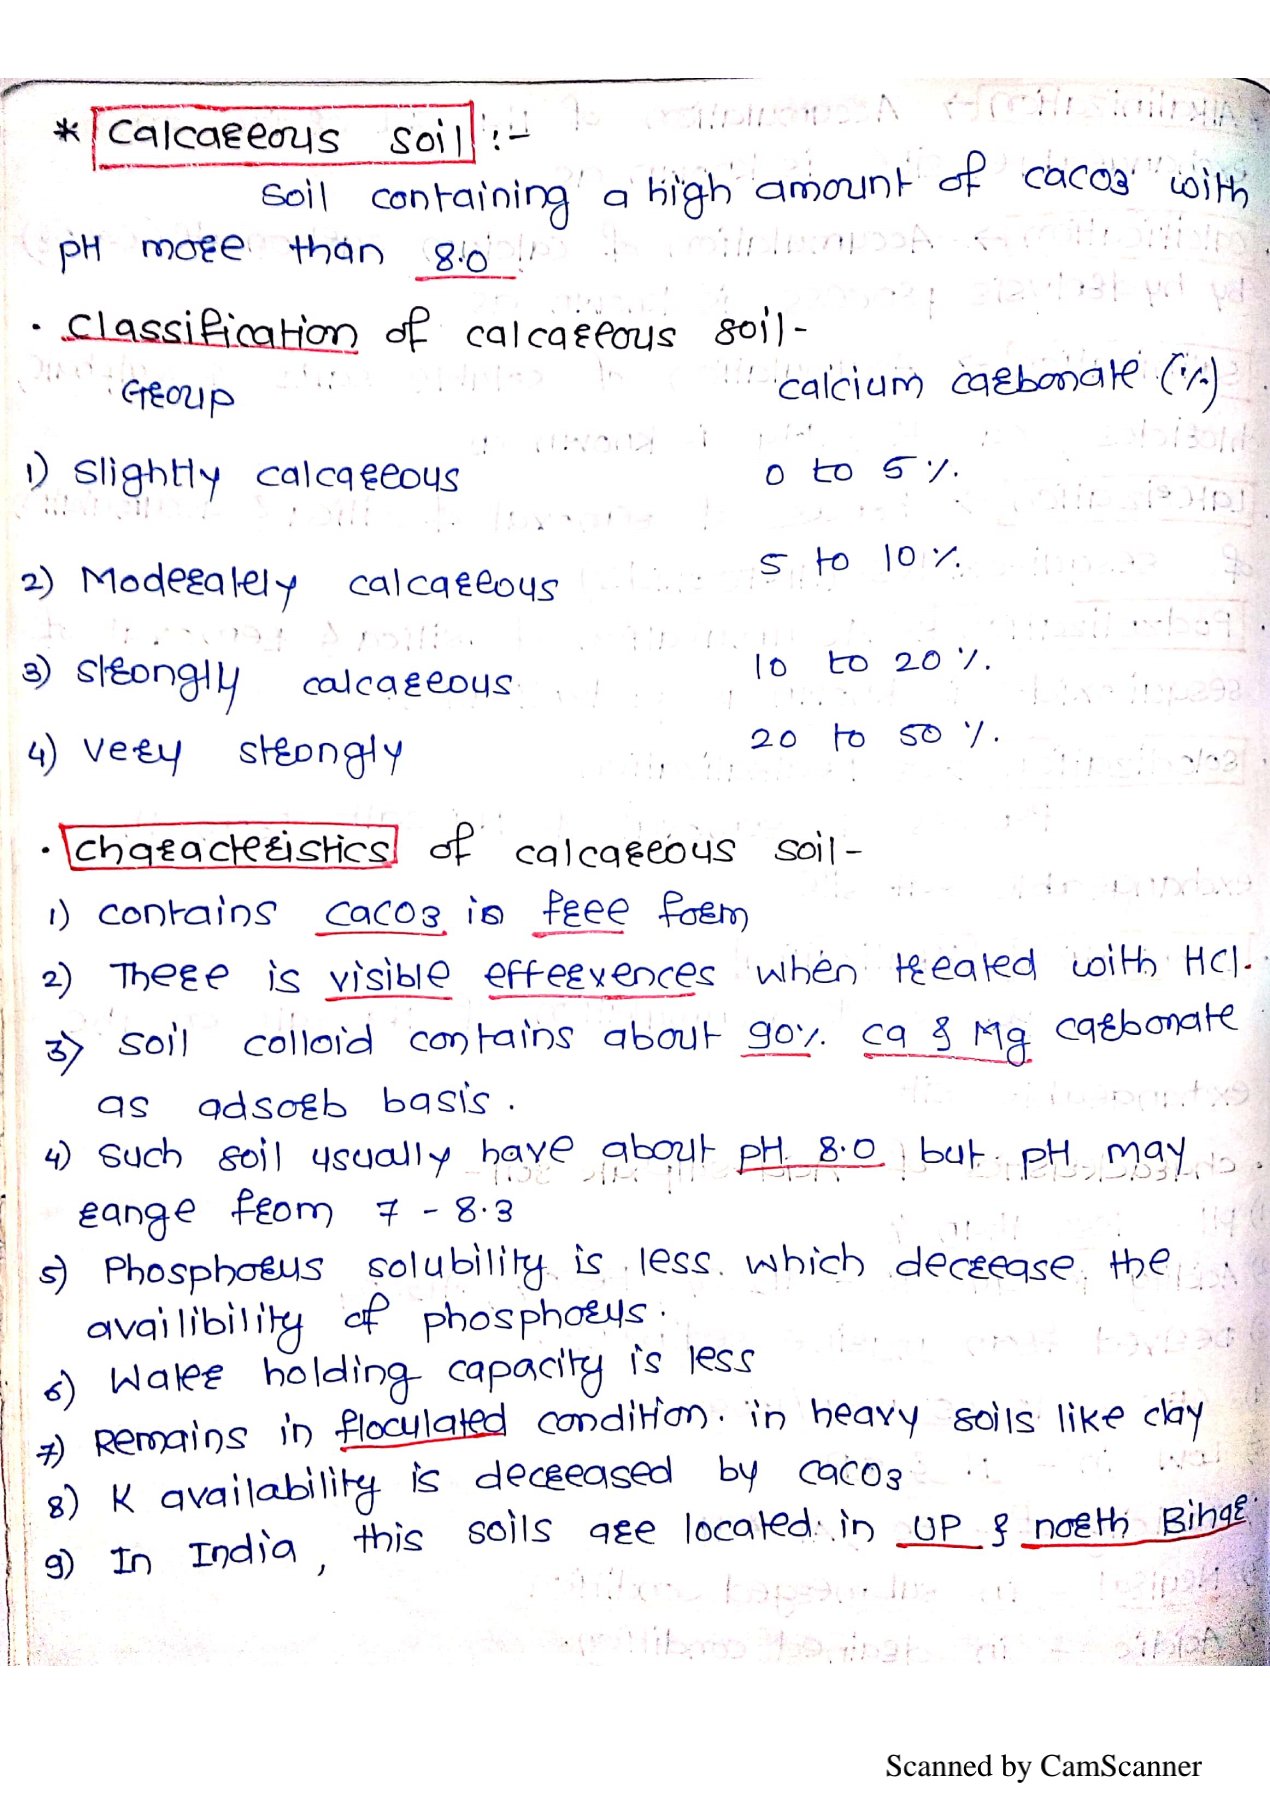 * Calcareous soil :-
soil containing a high amount of caco3 with
pH more than 8.0
· Classification of calcareous soil-
Group calcium carbonate (%)
1) slightly calcareous 0 to 5 %.
2) Moderately calcareous 5 to 10 %.
3) strongly calcareous 10 to 20 %.
4) very strongly 20 to 50 %.
· characteristics of calcareous soil-
1) contains caco3 in free form
2) There is visible effeervences when treated with HCl.
3) soil colloid contains about 90% ca & Mg carbonate
as adsorb basis.
4) such soil usually have about pH 8.0 but pH may
range from 7 - 8.3
5) Phosphorus solubility is less which decrease the
availibility of phosphorus.
6) Water holding capacity is less
7) Remains in floculated condition. in heavy soils like clay
8) K availability is decreased by caco3
9) In India, this soils are located in UP & north Bihar
Scanned by CamScanner